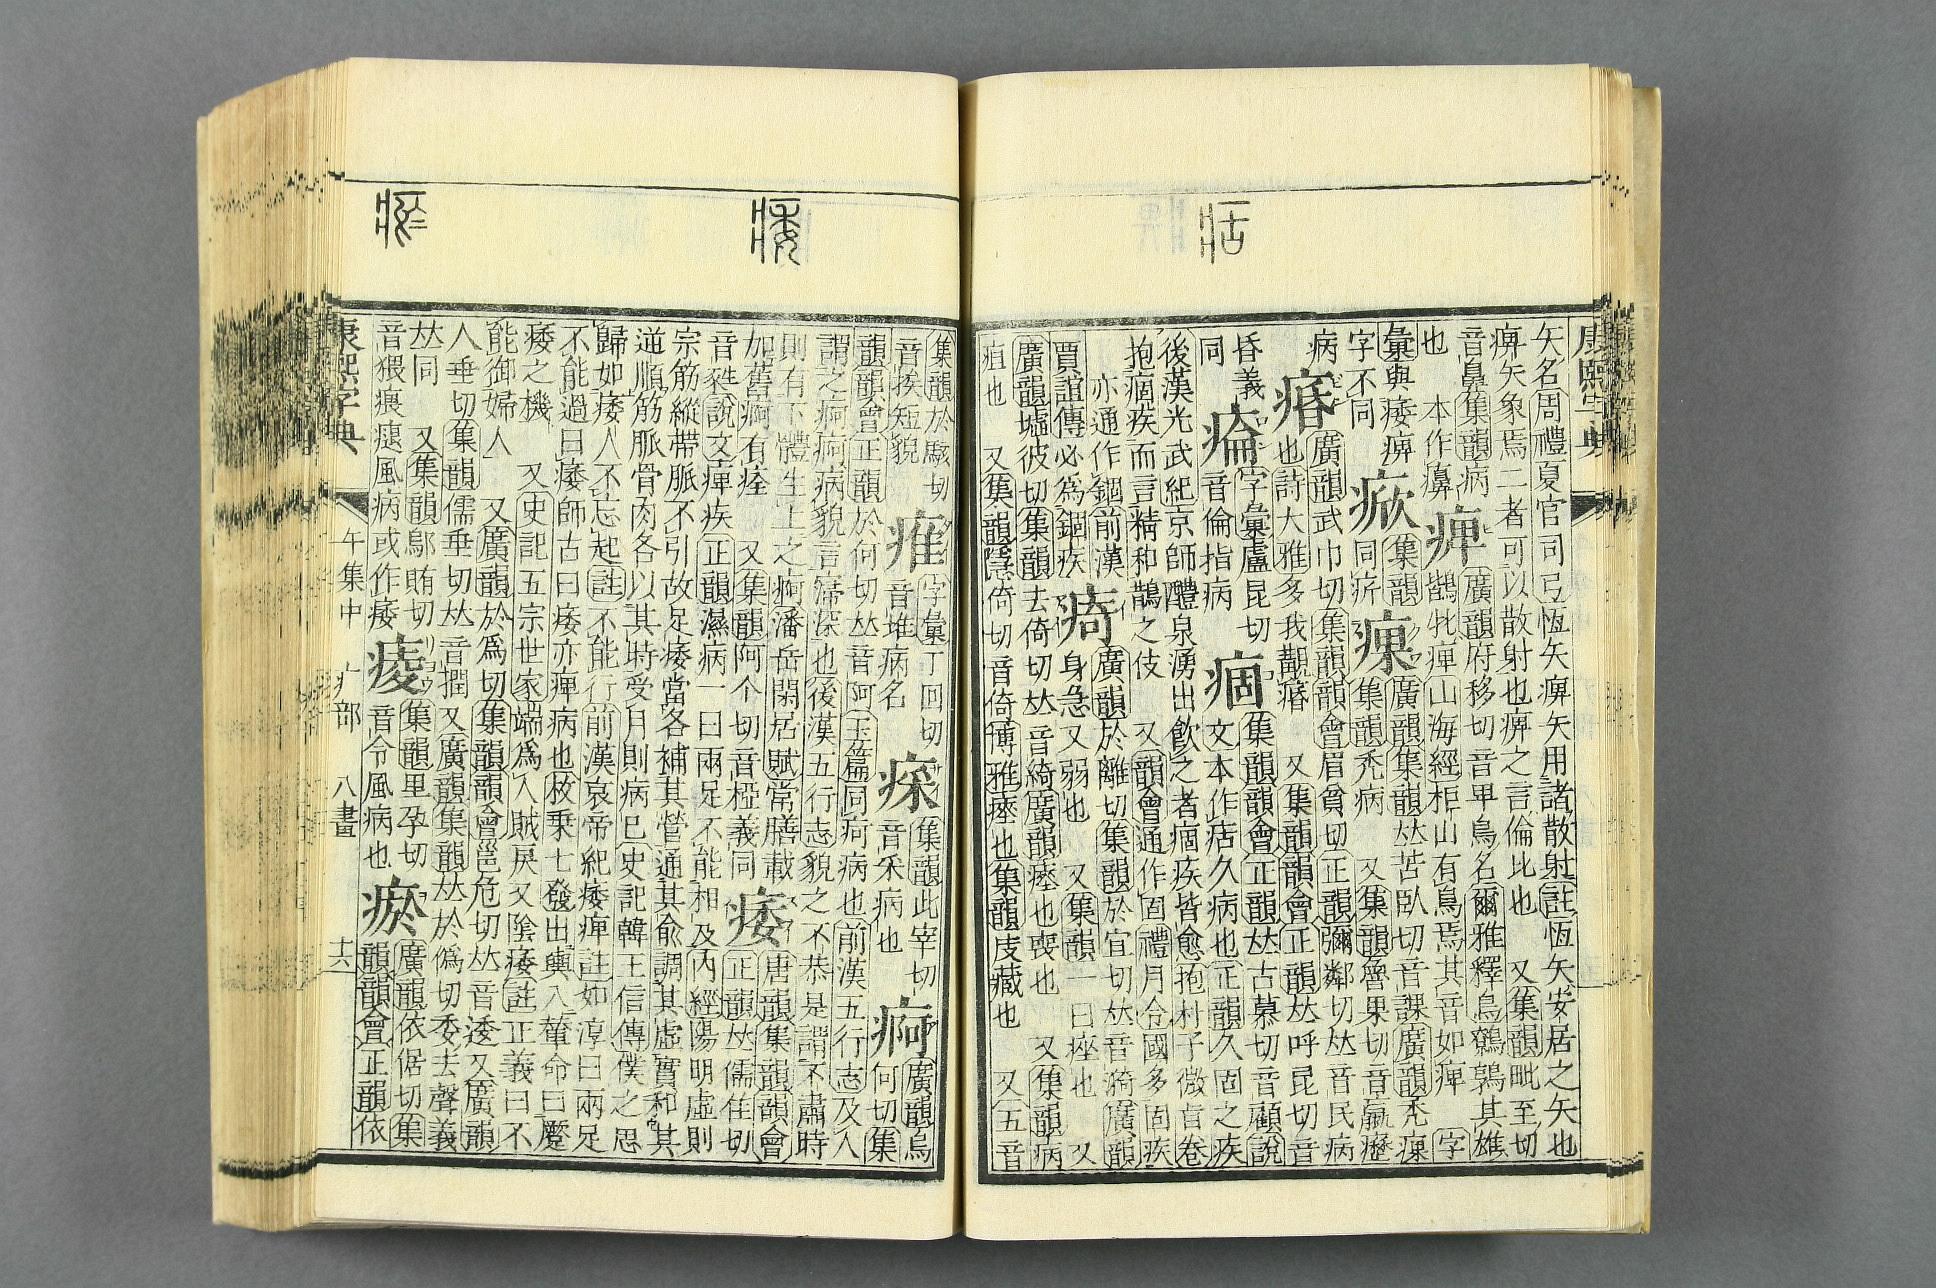 康熙字典
矢名周禮夏官司弓恆矢痹矢用諸散射註恆矢安居之矢也
痹矢象焉二者可以散射也痹之言倫比也 又集韻毗至切
音鼻集韻病
也 本作
痺 廣韻府移切音卑鳥名爾雅釋鳥鷯鶉其雄
鶛牝痺山海經柜山有鳥焉其音如痺 字
彙與痿痹
字不同
集韻
同疥
廣韻集韻𠀤苦臥切音課廣韻禿
集韻禿病 又集韻魯果切音
病
痻 廣韻武巾切集韻韻會眉貧切正韻彌鄰切𠀤音民病
也詩大雅多我覯痻 又集韻韻會正韻𠀤呼昆切音
昏義
同
字彙盧昆切
音倫指病
痼 集韻韻會正韻𠀤古慕切音顧說
文本作㽽久病也正韻久固之疾
後漢光武紀京師醴泉湧出飮之者痼疾皆愈抱朴子微旨卷
抱痼疾而言精和鵲之伎 又韻會通作固禮月令國多固疾
亦通作錮前漢
賈誼傳必爲錮疾
㾨 廣韻於離切集韻於宜切𠀤音漪廣韻
身急又弱也 又集韻一曰痤也 又
廣韻墟彼切集韻去倚切𠀤音綺廣韻痤也喪也 又集韻病
疽也 又集韻隱倚切音倚博雅瘞也集韻庋藏也 又五音
集韻於駭切
音挨短貌
字彙丁回切
音堆病名
集韻此宰切
音采病也
痾 廣韻烏
何切集
韻韻會正韻於何切𠀤音阿玉篇同疴病也前漢五行志及人
謂之痾痾病貌言深也後漢五行志貌之不恭是謂不肅時
則有下體生上之痾潘岳閑居賦常膳載
加舊痾有痊 又集韻阿个切音椏義同
痿 唐韻集韻韻會
正韻𠀤儒隹切
音甤說文痹疾正韻濕病一曰兩足不能相及內經陽明虛則
宗筋縱帶脈不引故足痿當各補其營通其兪調其虛實和其
逆順筋脈骨肉各以其時受月則病已史記韓王信傳僕之思
歸如痿人不忘起註不能行前漢哀帝紀痿痹註如淳曰兩足
不能過曰痿師古曰痿亦痹病也枚乘七發出輿入輦命曰蹷
痿之機 又史記五宗世家端爲人賊戾又陰痿註正義曰不
能御婦人 又廣韻於爲切集韻韻會邕危切𠀤音逶又廣韻
人垂切集韻儒垂切𠀤音 又廣韻集韻𠀤於僞切委去聲義
𠀤同 又集韻鄔賄切
音猥猥風病或作痿
集韻里孕切
音令風病也
瘀 廣韻依倨切集
韻韻會正韻依
康熙字典 午集中 疒部 八畫 十六